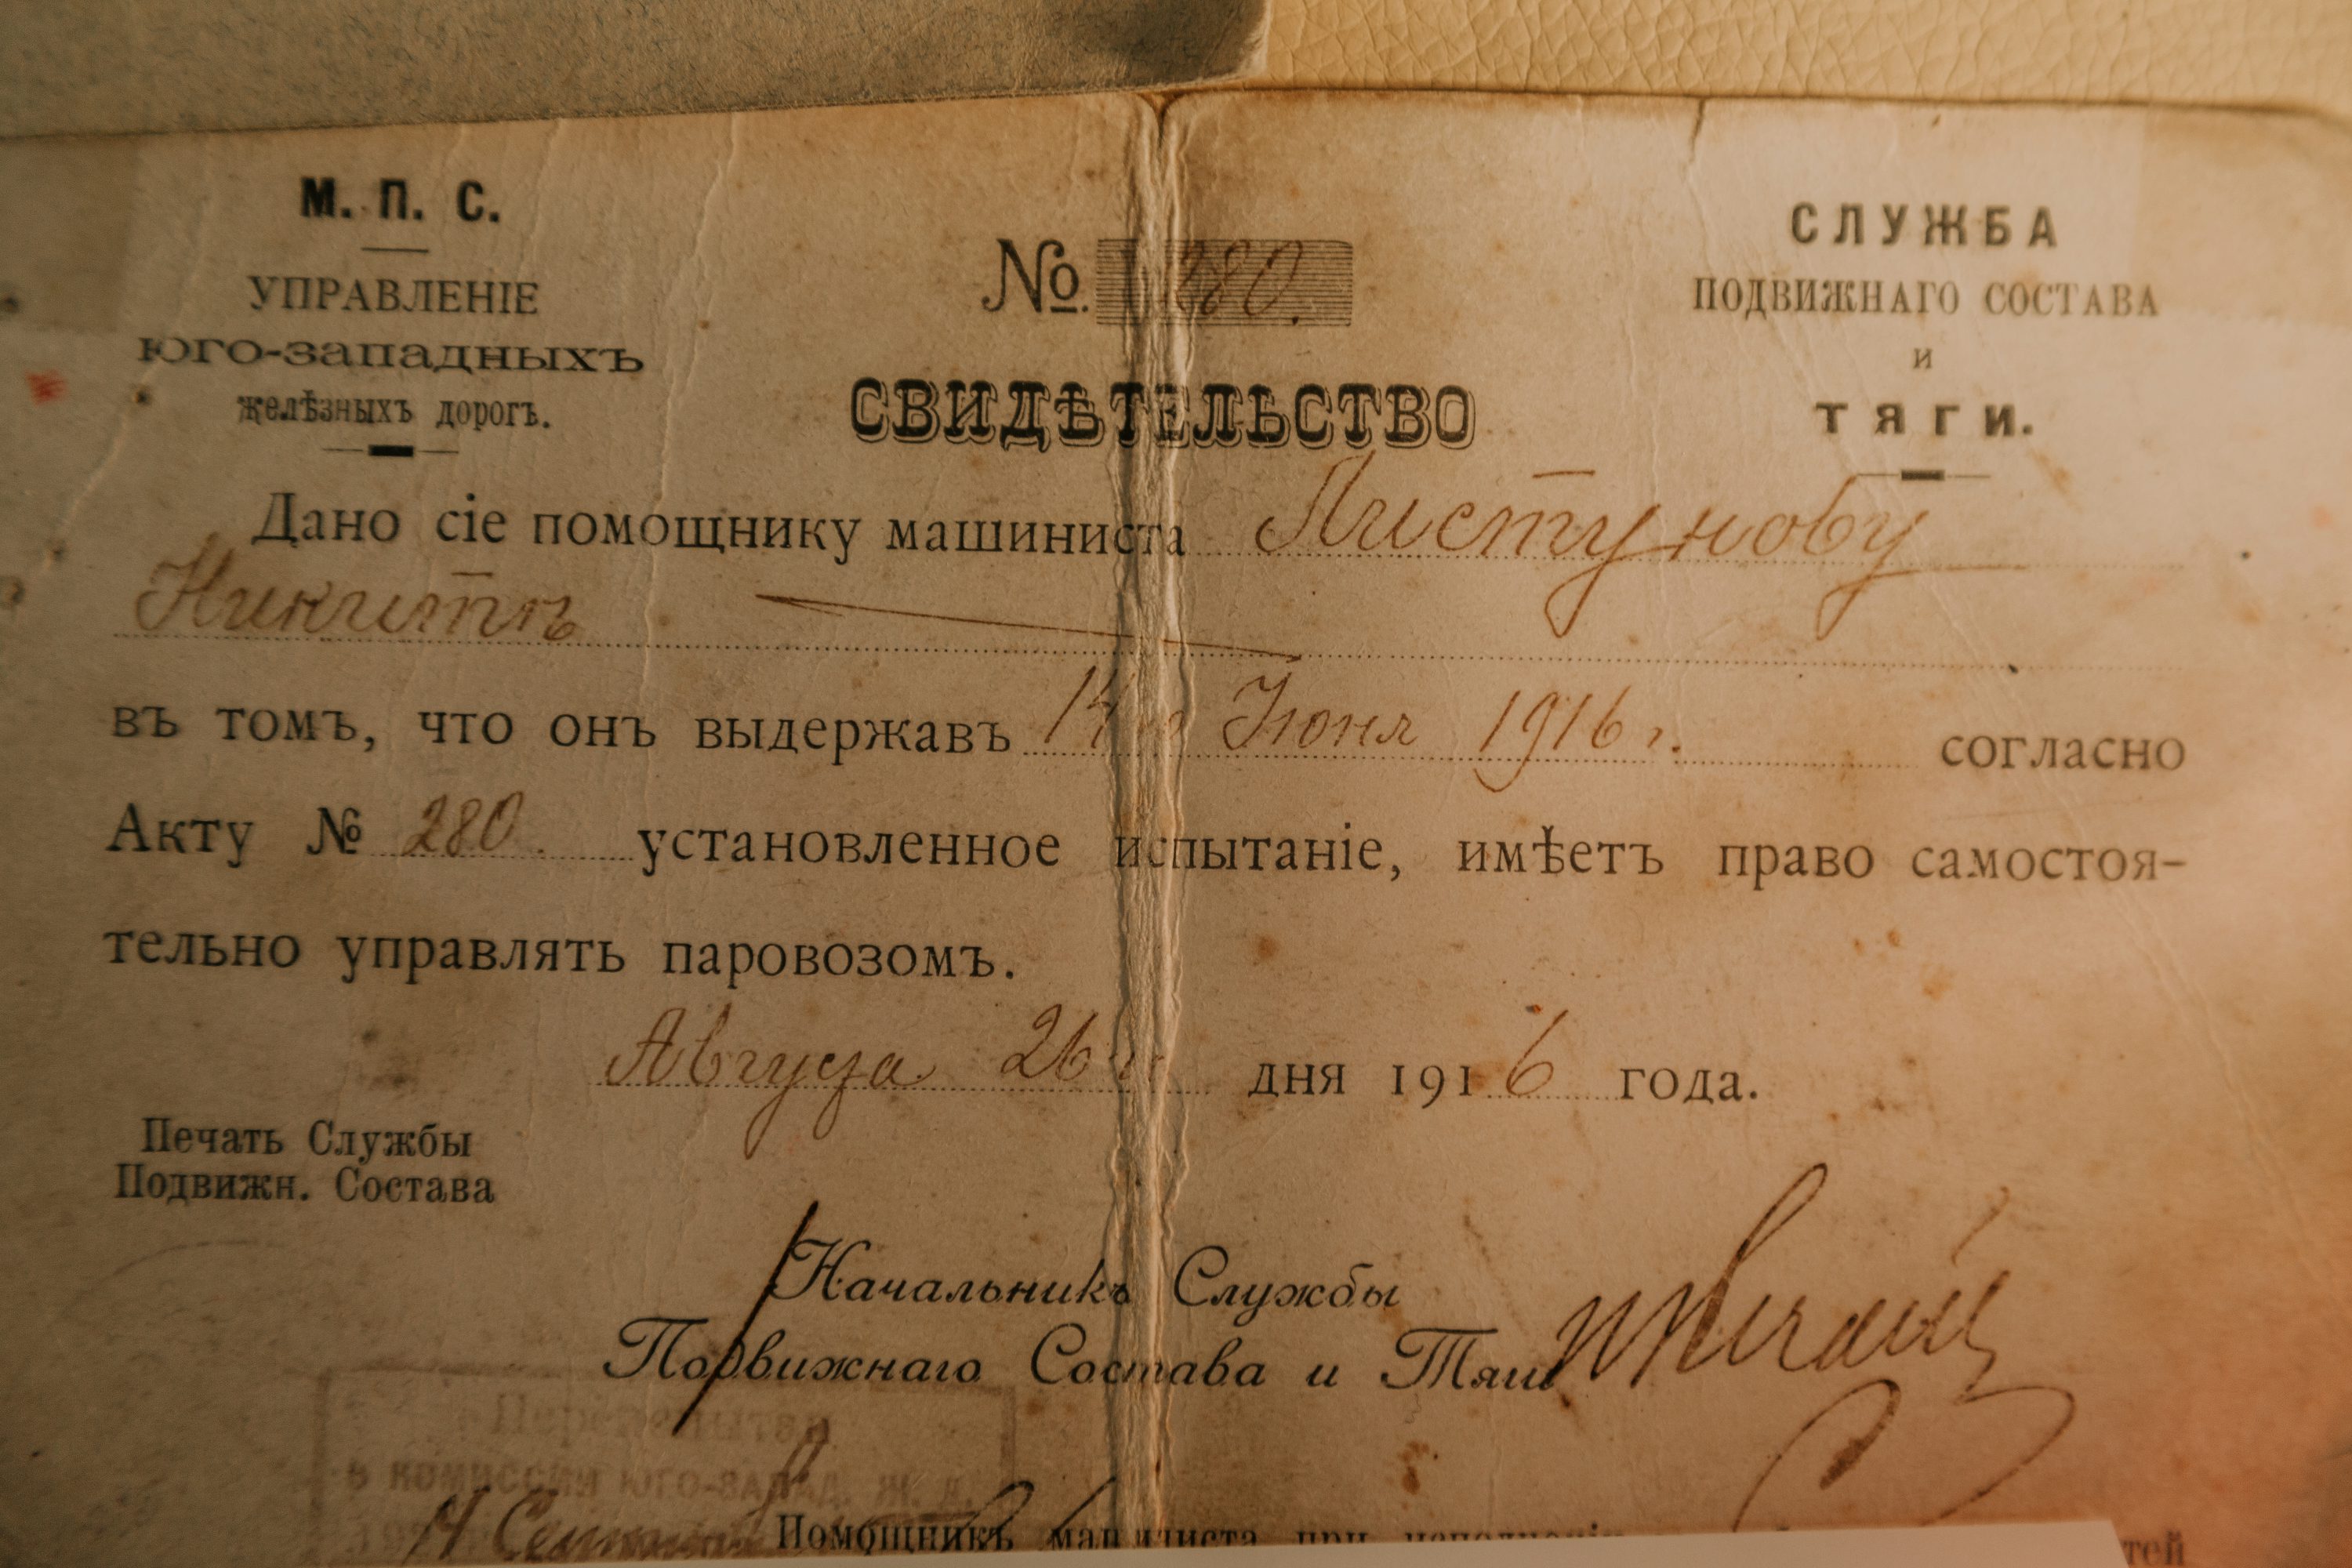 М. П. С.
УПРАВЛЕНІЕ
ЮГО-ЗАПАДНЫХЪ
желѣзныхъ дорогъ.
№. 280.
СЛУЖБА
ПОДВИЖНАГО СОСТАВА
и
ТЯГИ.
СВИДѢТЕЛЬСТВО
Дано сіе помощнику машиниста Листунову
Никитѣ
въ томъ, что онъ выдержавъ 14 Іюня 1916 г. согласно
Акту № 280. установленное испытаніе, имѣетъ право самостоя-
тельно управлять паровозомъ.
Августа 26 дня 1916 года.
Печать Службы
Подвижн. Состава
Начальникъ Службы
Подвижнаго Состава и Тяги
в комиссии Юго-Запад. Ж. Д.
Помощникъ машиниста при